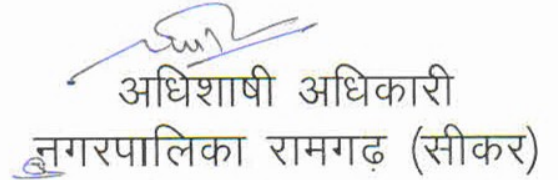 अधिशाषी अधिकारी
नगरपालिका रामगढ़ (सीकर)